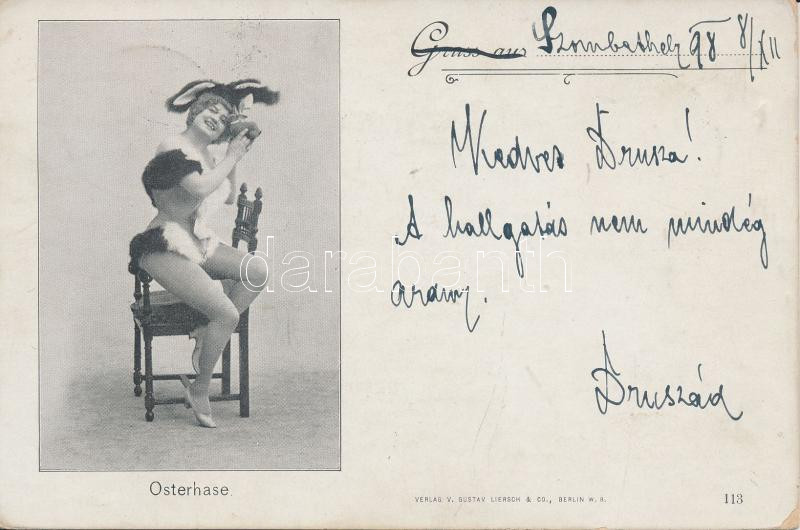 Gruss aus Szombathely 98 8/XII
Kedves Drusza!
A hallgatás nem mindég
arany.
Druszád
darabanth
Osterhase.
VERLAG V. GUSTAV LIERSCH & CO., BERLIN W. 8.
113